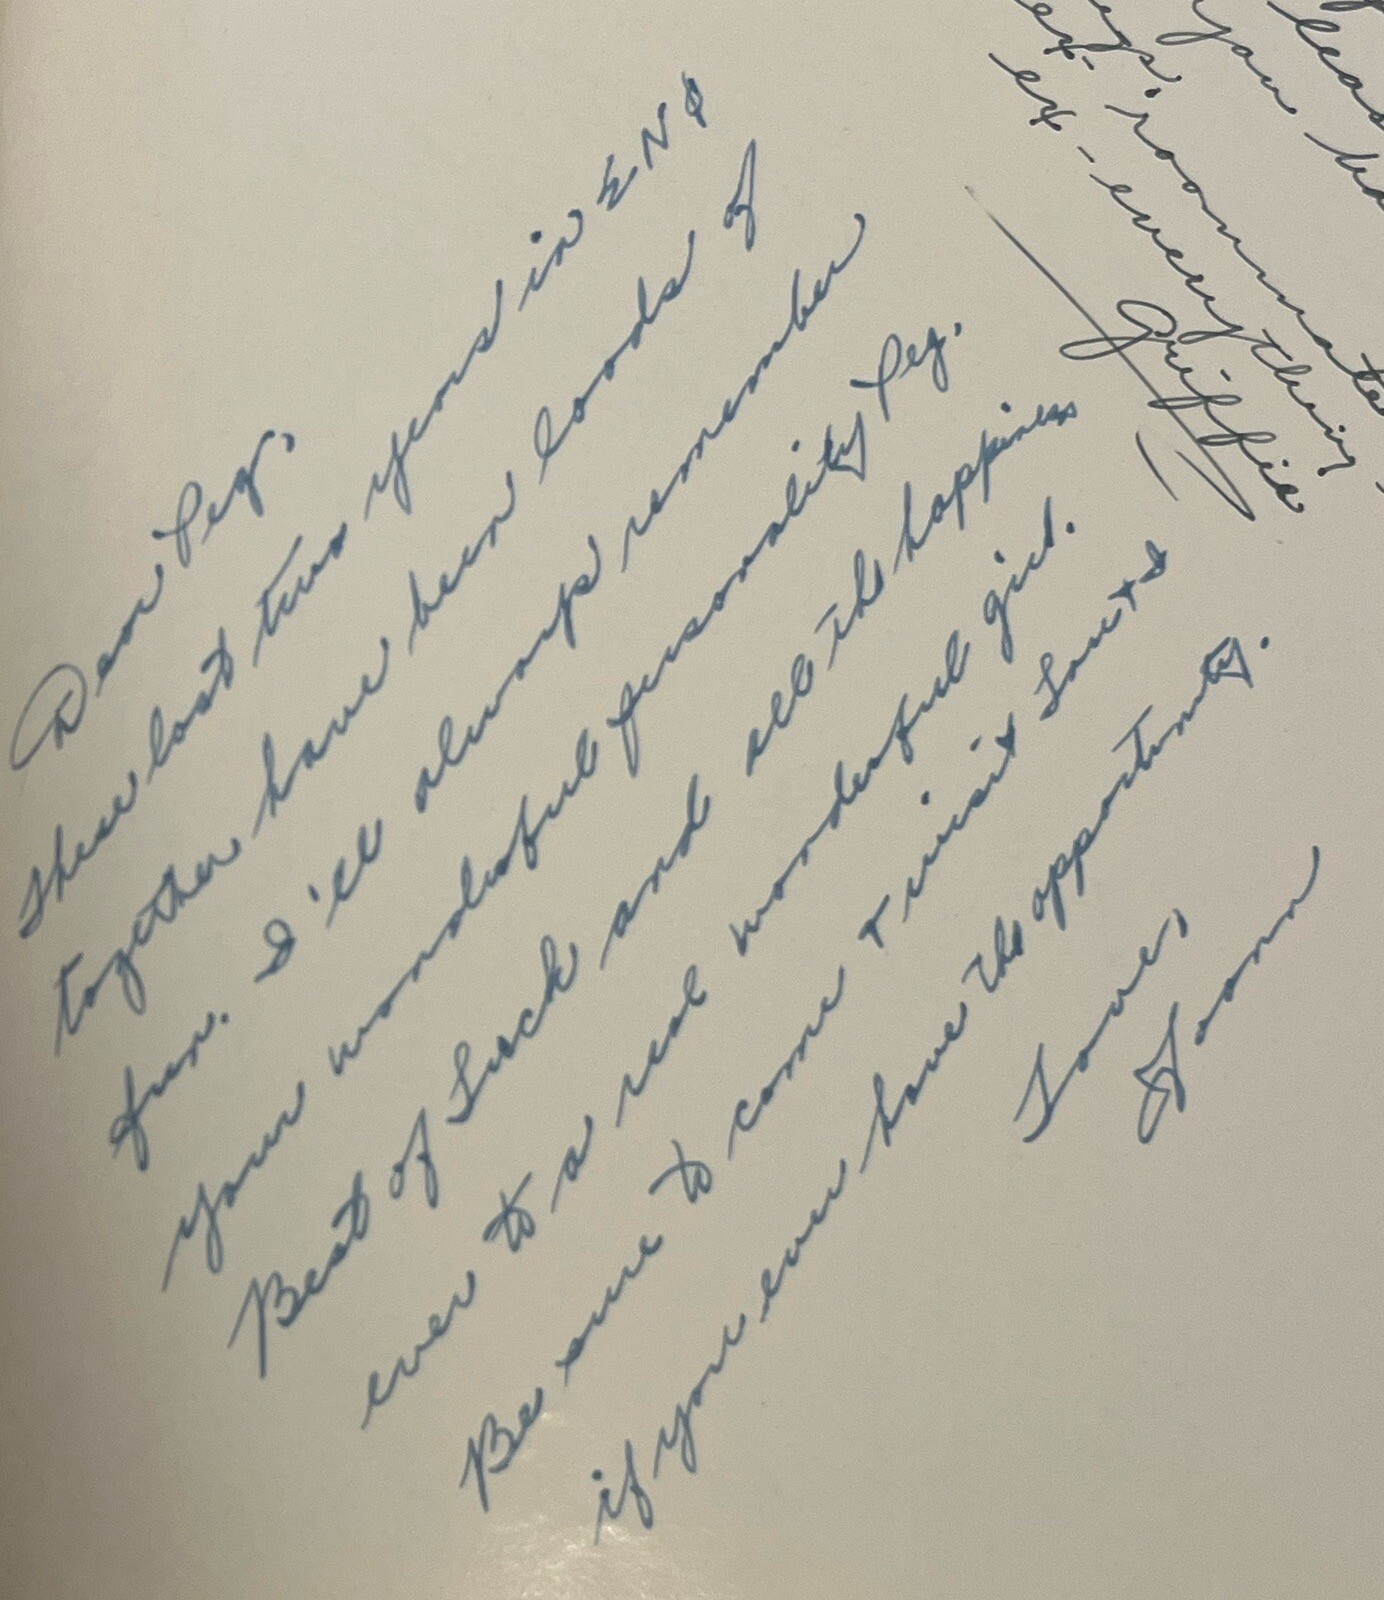 Dear Peg,
These last two years in ΣNΦ
together have been loads of
fun. I'll always remember
your wonderful personality Peg.
Best of Luck and all the happiness
ever to a real wonderful girl.
Be sure to come + visit Lou + I
if you ever have the opportunity.
Love,
Joann
you
ex-
roommate
ex-everything
Griffie